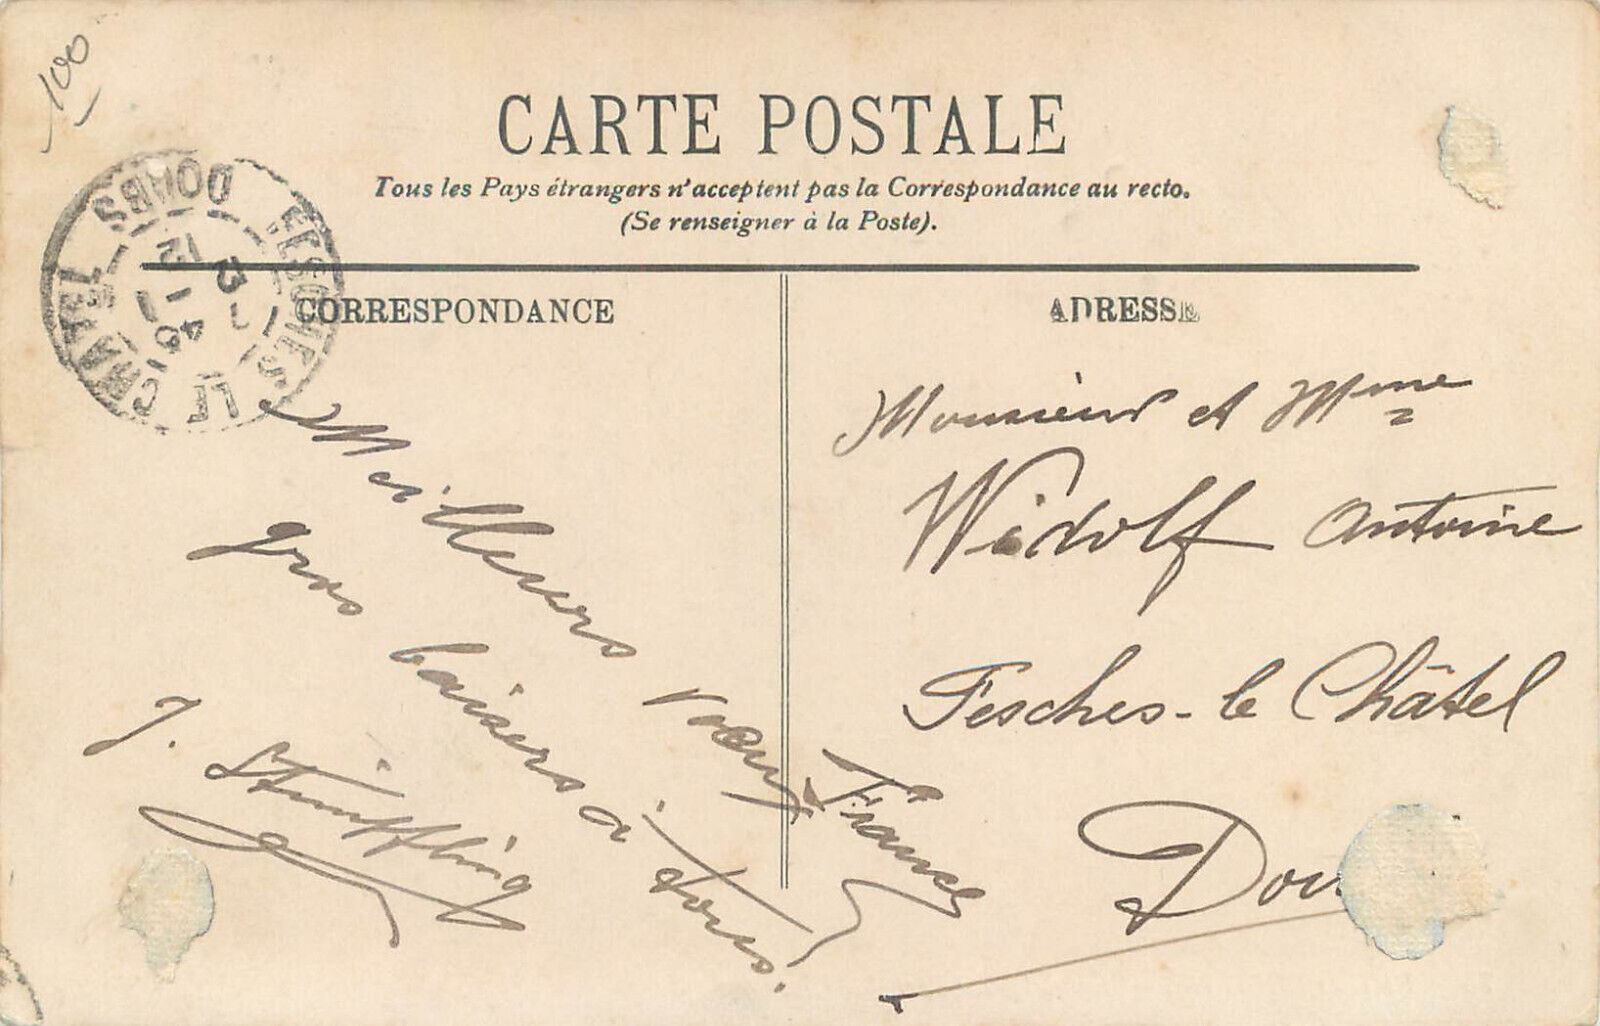 100
CARTE POSTALE
Tous les Pays étrangers n'acceptent pas la Correspondance au recto.
(Se renseigner à la Poste).
FESCHES LE CHATEL
DOUBS
CORRESPONDANCE
Meilleurs voeux
gros baisers à tous.
J.
ADRESSE
Monsieur et Mme
Widolf Antoine
Fesches-le Châtel
France
Dou